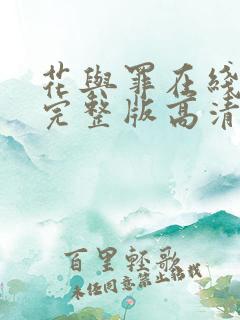 花與罪在綫
完整版高清
百里輕歌
未经同意禁止转载